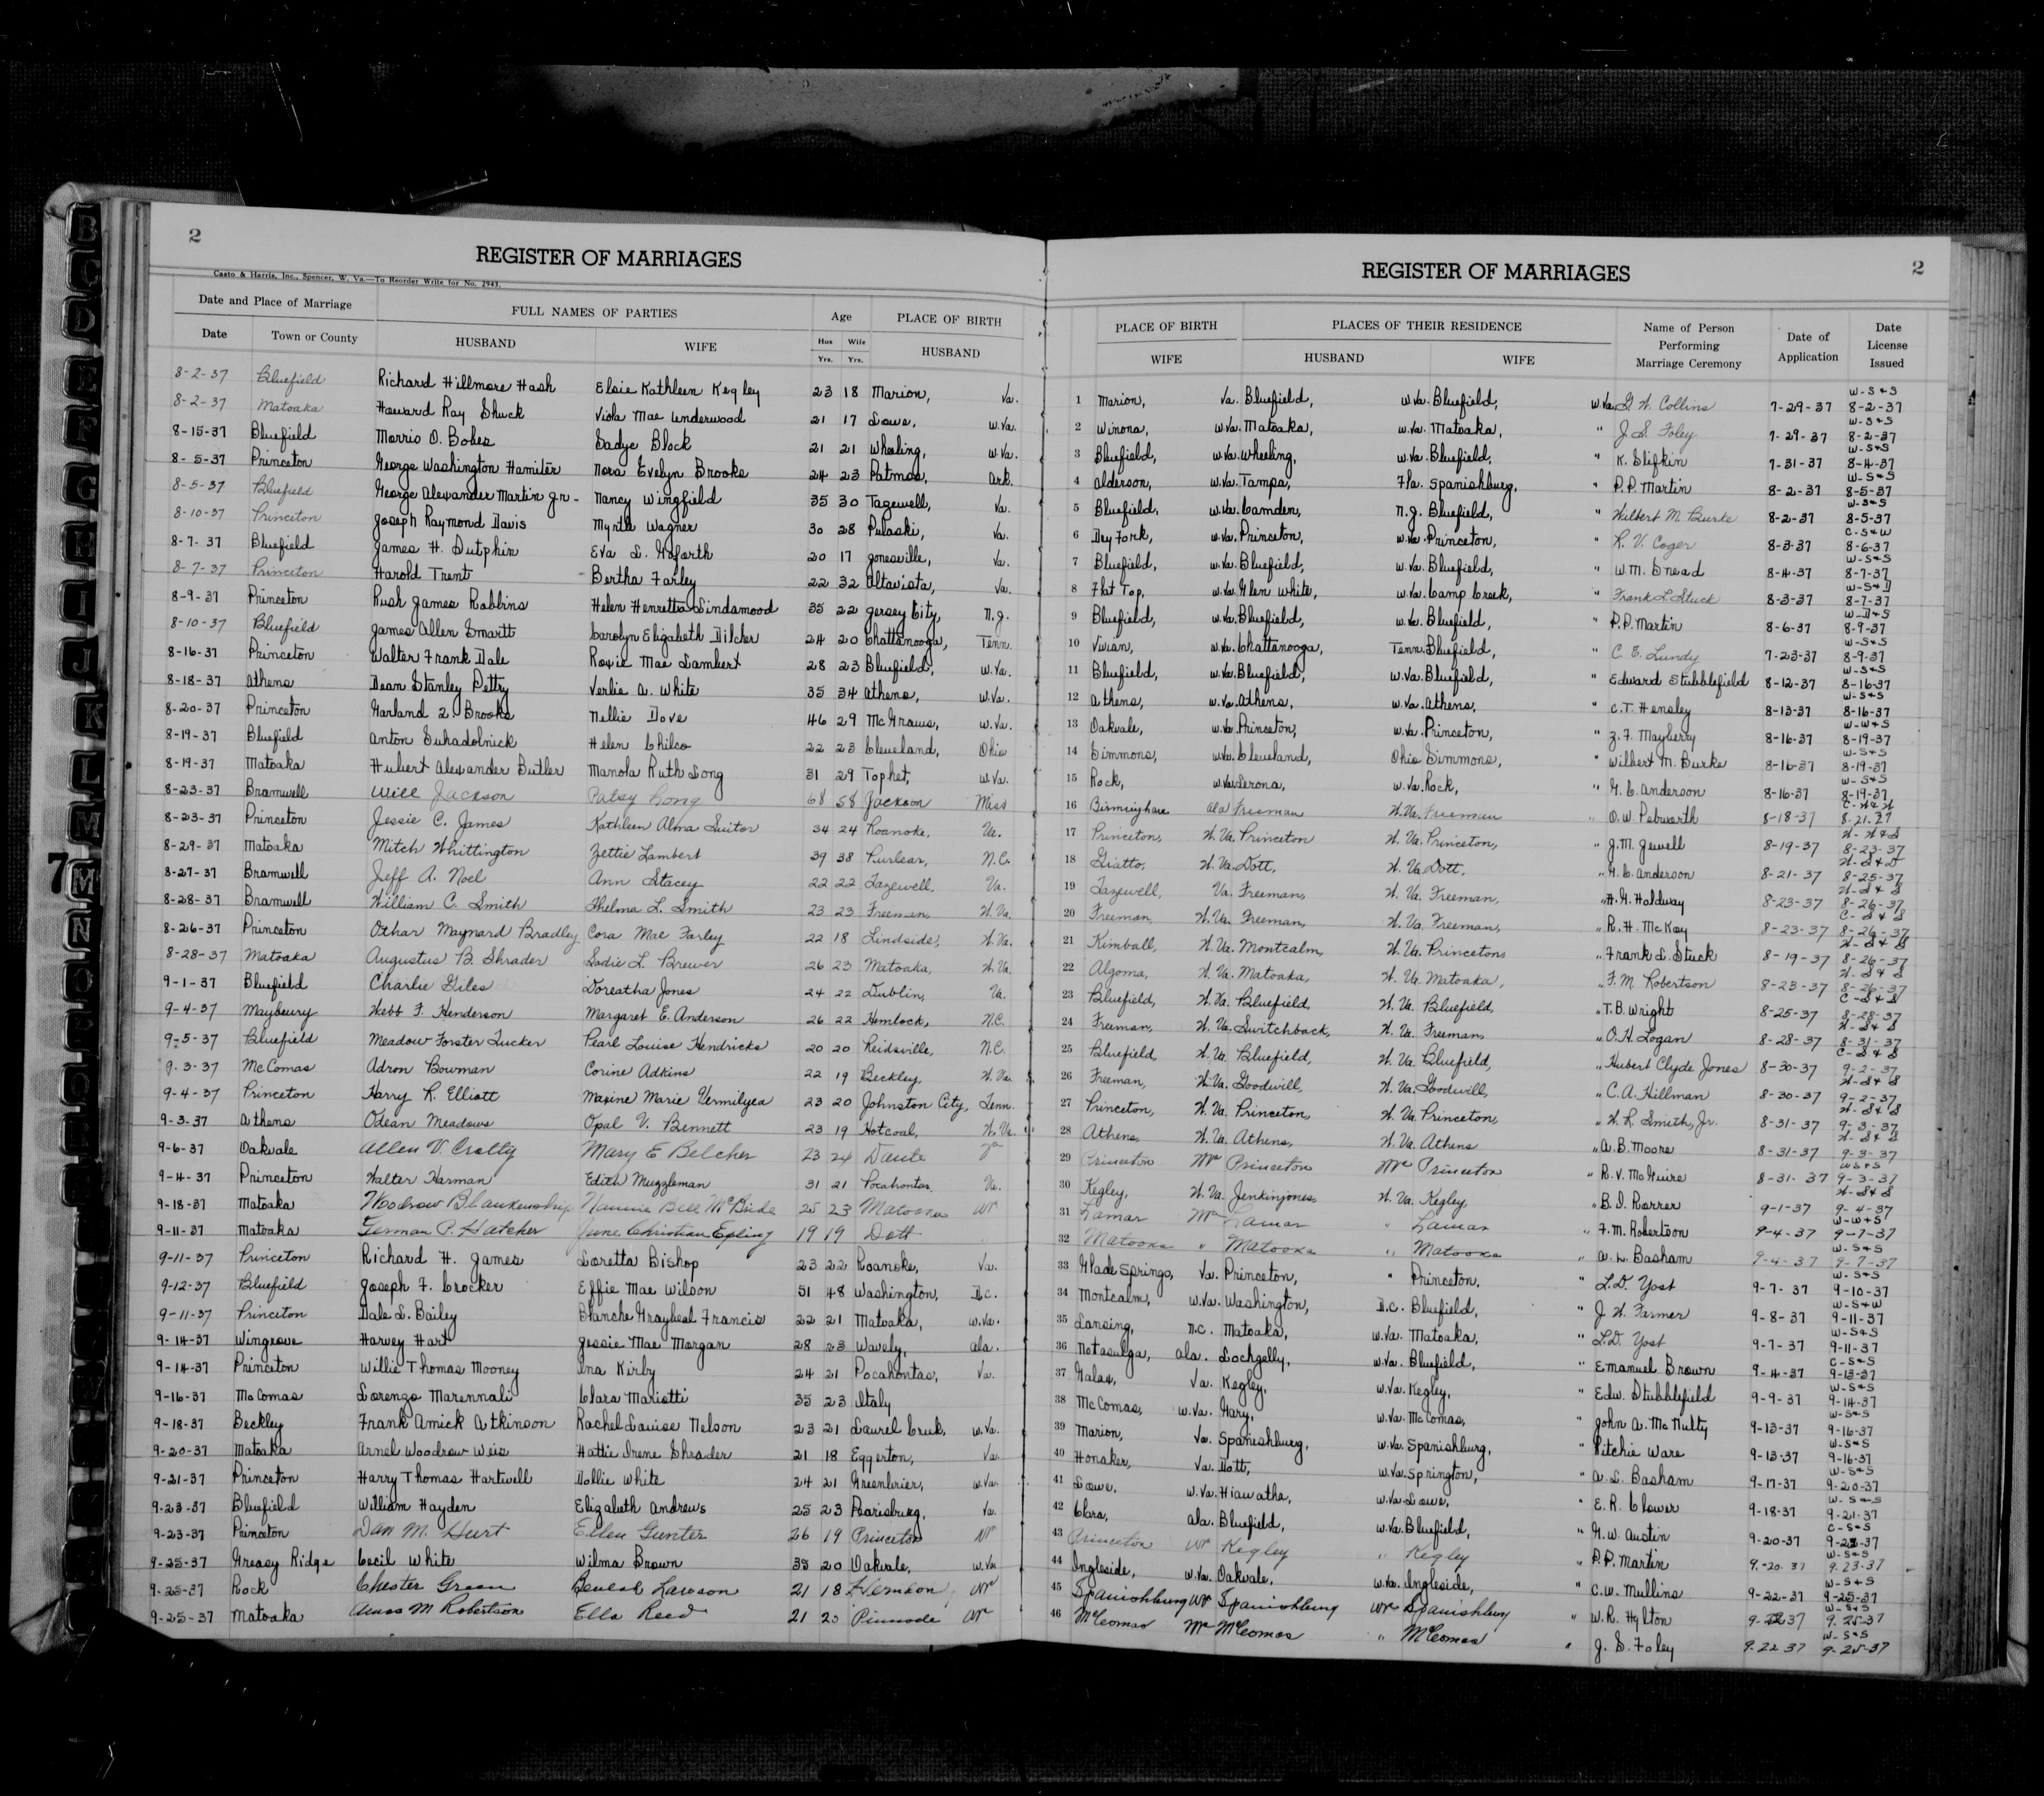 2
REGISTER OF MARRIAGES
Casto & Harris, Inc., Spencer, W. Va.—To Reorder Write for No. 2943.
Date and Place of Marriage FULL NAMES OF PARTIES Age PLACE OF BIRTH
Date Town or County HUSBAND WIFE Hus Yrs. Wife Yrs. HUSBAND
8-2-37 Bluefield Richard Hillmore Hash Elsie Kathleen Kegley 23 18 Marion, Va.
8-2-37 Matoaka Howard Ray Shuck Viola Mae Underwood 21 17 Lowe, W.Va.
8-15-37 Bluefield Morris O. Bobes Sadye Block 21 21 Wheeling, W.Va.
8-5-37 Princeton George Washington Hamiter Nora Evelyn Brooks 24 23 Patmos, Ark.
8-5-37 Bluefield George Alexander Martin Jr- Nancy Wingfield 35 30 Tazewell, Va.
8-10-37 Princeton Joseph Raymond Davis Myrtle Wagner 30 28 Pulaski, Va.
8-7-37 Bluefield James H. Dutphin Eva L. 20 17 Jonesville, Va.
8-7-37 Princeton Harold Trent Bertha Farley 22 32 Altavista, Va.
8-9-37 Princeton Rush James Robbins Helen Henretta Lindamood 35 22 Jersey City, N.J.
8-10-37 Bluefield James Allen Smartt Carolyn Elizabeth Dilcher 24 20 Chattanooga, Tenn.
8-16-37 Princeton Walter Frank Dale Roxie Mae Lambert 28 23 Bluefield, W.Va.
8-18-37 Athens Dean Stanley Pettry Verlie A. White 35 34 Athens, W.Va.
8-20-37 Princeton Garland L. Brooks Nellie Dove 46 29 McGraws, W.Va.
8-19-37 Bluefield Anton Suhadolnick Helen Chilco 22 23 Cleveland, Ohio
8-19-37 Matoaka Hubert Alexander Butler Manola Ruth Long 31 29 Tophet, W.Va.
8-23-37 Bramwell Will Jackson Patsy Long 68 58 Jackson Miss
8-23-37 Princeton Jessie C. James Kathleen Alma Suitor 34 24 Roanoke, Va.
8-29-37 Matoaka Mitch Whittington Zettie Lambert 39 38 Purlear, N.C.
8-27-37 Bramwell Jeff A. Noel Ann Stacey 22 22 Tazewell, Va.
8-28-37 Bramwell William C. Smith Thelma L. Smith 23 23 Freeman, W.Va.
8-26-37 Princeton Othar Maynard Bradley Cora Mae Farley 22 18 Lindside, W.Va.
8-28-37 Matoaka Augustus B. Shrader Sadie L. Brewer 26 23 Matoaka, W.Va.
9-1-37 Bluefield Charlie Giles Doreatha Jones 24 22 Dublin, Va.
9-4-37 Maybeury Webb F. Henderson Margaret E. Anderson 26 22 Hemlock, N.C.
9-5-37 Bluefield Meadow Forster Tucker Pearl Louise Hendricks 20 20 Reidsville, N.C.
9-3-37 McComas Adron Bowman Corine Adkins 22 19 Beckley, W.Va.
9-4-37 Princeton Harry R. Elliott Maxine Marie Vermilyea 23 20 Johnston City, Tenn.
9-3-37 Athens Odean Meadows Opal V. Bennett 23 19 Hotcoal, W.Va.
9-6-37 Oakvale Allen V. Crotty Mary E Belcher 23 24 Dante Va
9-4-37 Princeton Walter Harman Edith Muzzleman 31 21 Pocahontas, Va.
9-18-37 Matoaka Woodrow Blankenship Nannie Bell McBride 25 23 Matoaka W
9-11-37 Matoaka German P. Hatcher June Christian Epling 19 19 Dott "
9-11-37 Princeton Richard H. James Loretta Bishop 23 22 Roanoke, Va.
9-12-37 Bluefield Joseph F. Crocker Effie Mae Wilson 51 48 Washington, D.C.
9-11-37 Princeton Dale L. Bailey Blanche Graybeal Francis 22 21 Matoaka, W.Va.
9-14-37 Wingrove Harvey Hart Jessie Mae Morgan 28 23 Wavely, Ala.
9-14-37 Princeton Willie Thomas Mooney Ina Kirby 24 21 Pocahontas, Va.
9-16-37 McComas Lorenzo Marennali Clara Mariotti 35 23 Italy
9-18-37 Beckley Frank Amick Atkinson Rachel Louise Nelson 23 21 Laurel Creek, W.Va.
9-20-37 Matoaka Arnel Woodrow Weis Hattie Irene Shrader 21 18 Eggerton, Va.
9-21-37 Princeton Harry Thomas Hartwell Dollie White 24 21 Greenbrier, W.Va.
9-23-37 Bluefield William Hayden Elizabeth Andrews 25 23 Pearisburg, Va.
9-23-37 Princeton Dan M. Hurt Ellen Gunter 26 19 Princeton W
9-25-37 Greasy Ridge Cecil White Wilma Brown 38 20 Oakvale, W.Va
9-25-37 Rock Chester Green Beulah Lawson 21 18 Herndon, W
9-25-37 Matoaka Amos M Robertson Ella Reed 21 20 Pinnode W
2
REGISTER OF MARRIAGES
PLACE OF BIRTH PLACES OF THEIR RESIDENCE Name of Person Performing Marriage Ceremony Date of Application Date License Issued
WIFE HUSBAND WIFE
1 Marion, Va. Bluefield, W.Va. Bluefield, W.Va. G. W. Collins 7-29-37 W-S&S 8-2-37
2 Winona, W.Va. Matoaka, W.Va. Matoaka, " J. S. Foley 7-29-37 W-S&S 8-2-37
3 Bluefield, W.Va. Wheeling, W.Va. Bluefield, " K. Slifkin 7-31-37 W-S&S 8-4-37
4 Alderson, W.Va. Tampa, Fla. Spanishburg, " P.P. Martin 8-2-37 W-S&S 8-5-37
5 Bluefield, W.Va. Camden, N.J. Bluefield, " Wilbert M. Burke 8-2-37 W-S&S 8-5-37
6 Dry Fork, W.Va. Princeton, W.Va. Princeton, " R. V. Coger 8-3-37 C-S&W 8-6-37
7 Bluefield, W.Va. Bluefield, W.Va. Bluefield, " W.M. Snead 8-4-37 W-S&S 8-7-37
8 Flat Top, W.Va. Glen White, W.Va. Camp Creek, " Frank L. Stuck 8-3-37 W-S&D 8-7-37
9 Bluefield, W.Va. Bluefield, W.Va. Bluefield, " P.P. Martin 8-6-37 W-D&S 8-9-37
10 Vivian, W.Va. Chattanooga, Tenn. Bluefield, " C. E. Lundy 7-23-37 W-S&S 8-9-37
11 Bluefield, W.Va. Bluefield, W.Va. Bluefield, " Edward Stubblefield 8-12-37 W-S&S 8-16-37
12 Athens, W.Va. Athens, W.Va. Athens, " C.T. Hensley 8-13-37 W-S&S 8-16-37
13 Oakvale, W.Va. Princeton, W.Va. Princeton, " Z. F. Mayberry 8-16-37 W-W&S 8-19-37
14 Simmons, W.Va. Cleveland, Ohio Simmons, " Wilbert M. Burke 8-16-37 W-S&S 8-19-37
15 Rock, W.Va. Lerona, W.Va. Rock, " G. C. Anderson 8-16-37 W-S&S 8-19-37
16 Birmingham Ala Freeman W.Va. Freeman " O.W. 8-18-37 C-W&W 8-21-37
17 Princeton, W.Va. Princeton W.Va. Princeton, " J.M. Jewell 8-19-37 W-W&S 8-23-37
18 Giatto, W.Va. Dott, W.Va. Dott, " G. C. Anderson 8-21-37 W-S&D 8-25-37
19 Tazewell, Va. Freeman, W.Va. Freeman, " H. G. Haldway 8-23-37 W-S&S 8-26-37
20 Freeman, W.Va. Freeman, W.Va. Freeman, " R. H. McKoy 8-23-37 C-S&S 8-26-37
21 Kimball, W.Va. Montcalm, W.Va. Princeton, " Frank L. Stuck 8-19-37 W-S&S 8-26-37
22 Algoma, W.Va. Matoaka, W.Va. Matoaka, " F. M. Robertson 8-23-37 W-S&S 8-26-37
23 Bluefield, W.Va. Bluefield, W.Va. Bluefield, " T.B. Wright 8-25-37 C-S&S 8-28-37
24 Freeman, W.Va. Switchback, W.Va. Freeman, " O.H. Logan 8-28-37 W-S&S 8-31-37
25 Bluefield, W.Va. Bluefield, W.Va. Bluefield, " Hubert Clyde Jones 8-30-37 C-S&S 9-2-37
26 Freeman, W.Va. Goodwill, W.Va. Goodwill, " C.A. Hillman 8-30-37 W-S&S 9-2-37
27 Princeton, W.Va. Princeton, W.Va. Princeton, " W. R. Smith, Jr. 8-31-37 W-S&S 9-3-37
28 Athens, W.Va. Athens, W.Va. Athens " A. B. Moore 8-31-37 W-S&S 9-3-37
29 Princeton W Princeton W Princeton " R. V. McGuire 8-31-37 WS&S 9-3-37
30 Kegley, W.Va. Jenkinjones, W.Va. Kegley, " B. D. Rarrer 9-1-37 W-S&S 9-4-37
31 Lamar W Lamar " Lamar " F.M. Robertson 9-4-37 W-W&S 9-7-37
32 Matoaka " Matoaka " Matoaka " A. L. Basham 9-4-37 W-S&S 9-7-37
33 Glade Springs, Va. Princeton, " Princeton, " L.D. Yost 9-7-37 W-S&S 9-10-37
34 Montcalm, W.Va. Washington, D.C. Bluefield, " J. W. Farmer 9-8-37 W-S&W 9-11-37
35 Lansing, N.C. Matoaka, W.Va. Matoaka, " L.D. Yost 9-7-37 W-S&S 9-11-37
36 Notasulga, Ala. Lochgelly, W.Va. Bluefield, " Emanuel Brown 9-4-37 C-S&S 9-13-37
37 Galax, Va. Kegley, W.Va. Kegley, " Edw. Stubblefield 9-9-37 W-S&S 9-14-37
38 McComas, W.Va. Gary, W.Va. McComas, " John A. McNulty 9-13-37 W-S&S 9-16-37
39 Marion, Va. Spanishburg, W.Va. Spanishburg, " Ritchie Ware 9-13-37 W-S&S 9-16-37
40 Honaker, Va. Dott, W.Va. Springton, " A. L. Basham 9-17-37 W-S&S 9-20-37
41 Lowe, W.Va. Hiawatha, W.Va. Lowe, " E. R. Clower 9-18-37 W-S&S 9-21-37
42 Clara, Ala. Bluefield, W.Va. Bluefield, " G. W. Austin 9-20-37 C-S&S 9-23-37
43 Princeton W Kegley " Kegley " P.P. Martin 9-20-37 W-S&S 9-23-37
44 Ingleside, W.Va. Oakvale, W.Va. Ingleside, " C.W. Mullins 9-22-37 W-S&S 9-25-37
45 Spanishburg W Spanishburg W Spanishburg " W.R. Hylton 9-22-37 W-S&S 9-25-37
46 McComas W McComas " McComas " J. S. Foley 9-22-37 W-S&S 9-25-37